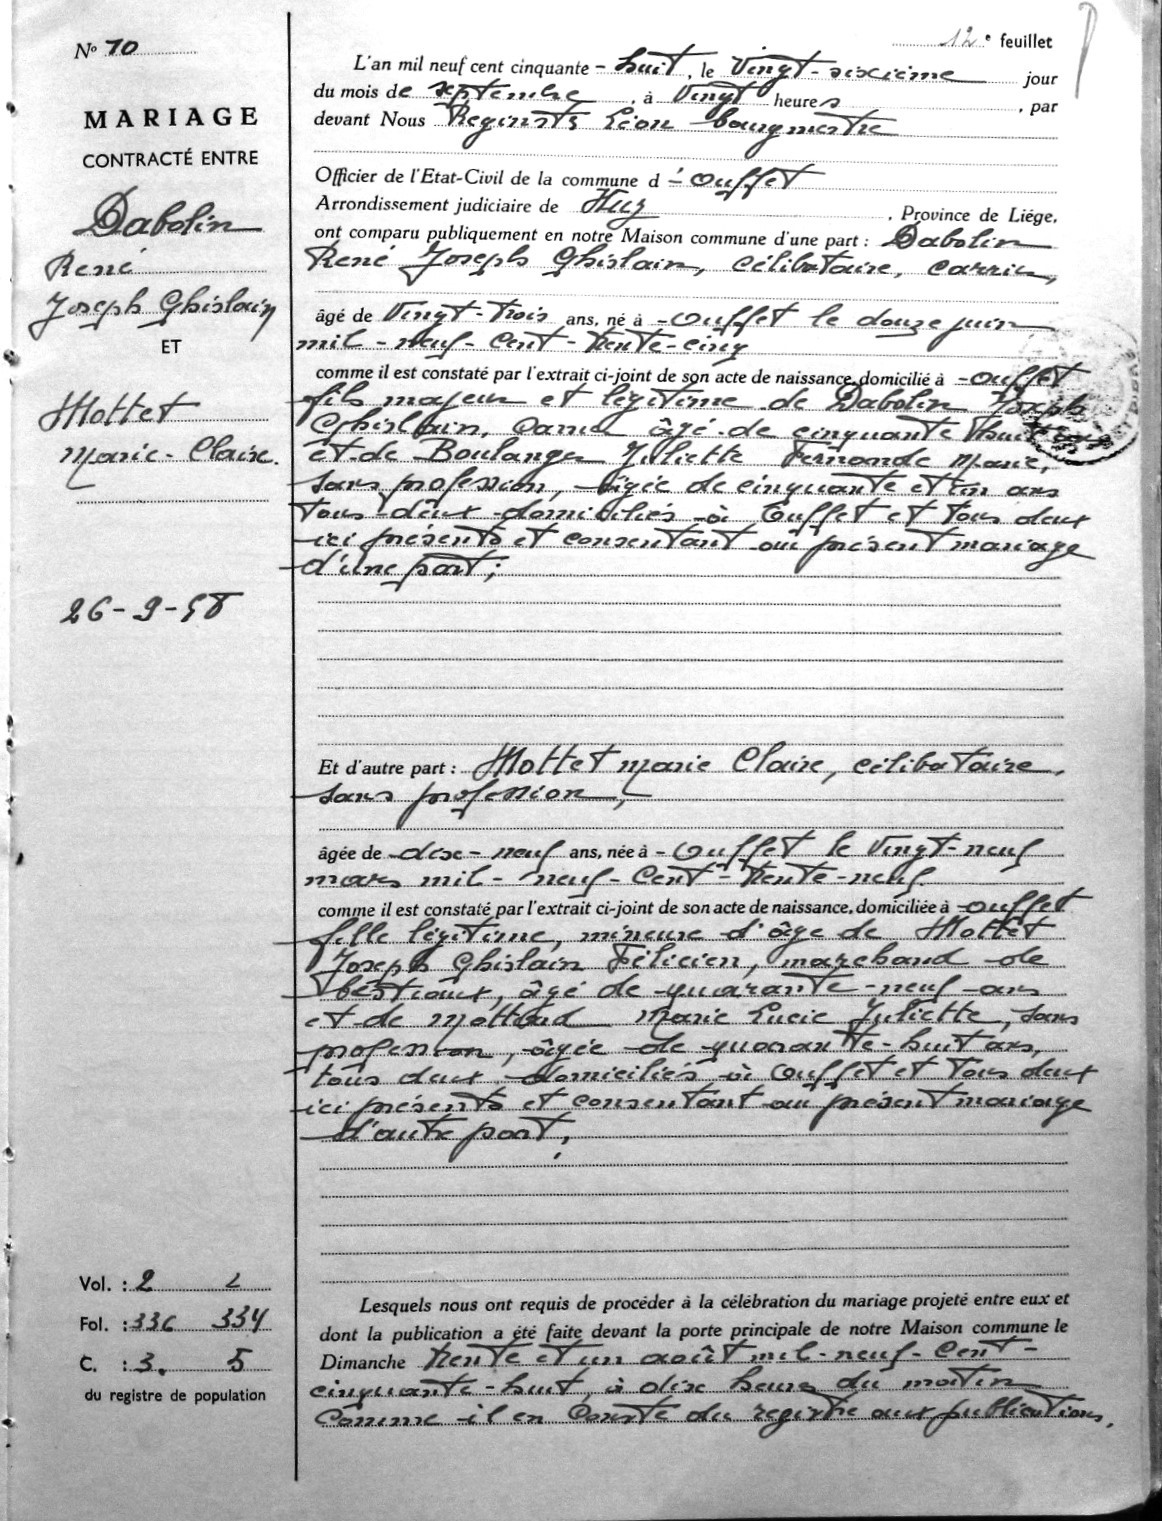 No 10
12e feuillet
MARIAGE
CONTRACTÉ ENTRE
Dabolin
René
Joseph Ghislain
ET
Mottet
Marie-Claire.
26-9-58
Vol. : 2 2
Fol. : 336 334
C. : 3. 5
du registre de population
L'an mil neuf cent cinquante - huit, le Vingt-sixième jour
du mois de septembre, à Vingt heures, par
devant Nous Reginster Léon bourgmestre
Officier de l'Etat-Civil de la commune d'Ouffet
Arrondissement judiciaire de Huy, Province de Liége,
ont comparu publiquement en notre Maison commune d'une part : Dabolin
René Joseph Ghislain, célibataire, carrier,
âgé de Vingt-trois ans, né à Ouffet le douze juin
mil-neuf-cent-trente-cinq
comme il est constaté par l'extrait ci-joint de son acte de naissance, domicilié à Ouffet
fils majeur et légitime de Dabolin Joseph
Ghislain, âgé de cinquante huit ans
et de Boulanger Juliette Fernande Marie,
sans profession, âgée de cinquante et un ans
tous deux domiciliés à Ouffet et tous deux
ici présents et consentant au présent mariage
d'une part;
Et d'autre part : Mottet Marie Claire, célibataire,
sans profession,
âgée de dix-neuf ans, née à Ouffet le Vingt-neuf
mars mil-neuf-cent-trente-neuf.
comme il est constaté par l'extrait ci-joint de son acte de naissance, domiciliée à Ouffet
fille légitime, mineure d'âge de Mottet
Joseph Ghislain Félicien, marchand de
bestiaux, âgé de quarante-neuf ans
et de Mottoud Marie Lucie Juliette, sans
profession, âgée de quarante-huit ans,
tous deux domiciliés à Ouffet et tous deux
ici présents et consentant au présent mariage
d'autre part;
Lesquels nous ont requis de procéder à la célébration du mariage projeté entre eux et
dont la publication a été faite devant la porte principale de notre Maison commune le
Dimanche trente et un août mil-neuf-cent-
cinquante-huit, à dix heures du matin
Comme il en conste du registre aux publications.